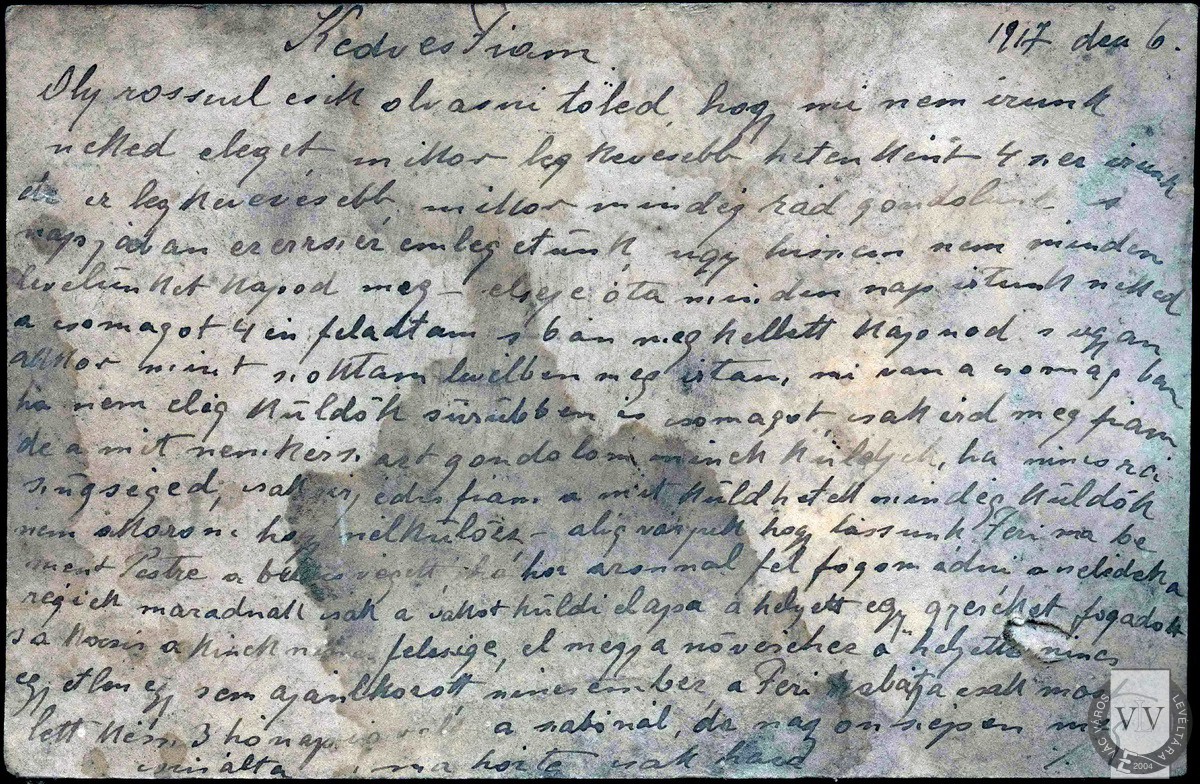 Kedves Fiam 1917 dec 6.
Oly rosszul esik olvasni töled, hogy mi nem irunk
neked eleget, mikor leg kevesebb hetenként 4 szer irunk
de ez legkevesebb, mikor mindég rád gondolunk s
napjában ezerszer emlegetünk, ugy hiszem nem minden
levelünket kapod meg – elseje óta minden nap irtunk neked
a csomagot 4 én feladtam s ban meg kellett kapnod s ugyan
akkor mint szoktam levélben meg irtam, mi van a csomag ban
ha nem elég küldök sürübben is csomagot, csak ird meg fiam
de a mit nem kérsz azt gondolom minek küldjek, ha nincs rá
szügséged, csak irj édes fiam a mit küldhetek mindég küldök
nem akarom hogy nélkülözz – alig várjuk hogy lássunk Feri ma be
ment Pestre a végett, ha hoz azonnal fel fogom adni a cselédek a
régiek maradnak csak a küldi el apa a helyett egy fogadott
s a kocsis a kinek nincs felesége, el megy a növéréhez a helyette nincs
egyetlen egy sem ajánlkozott, nincs ember, a Feri kabátja csak ma
lett kész 3 hónap a szabónál, de nagyon szépen
ma hozta csak